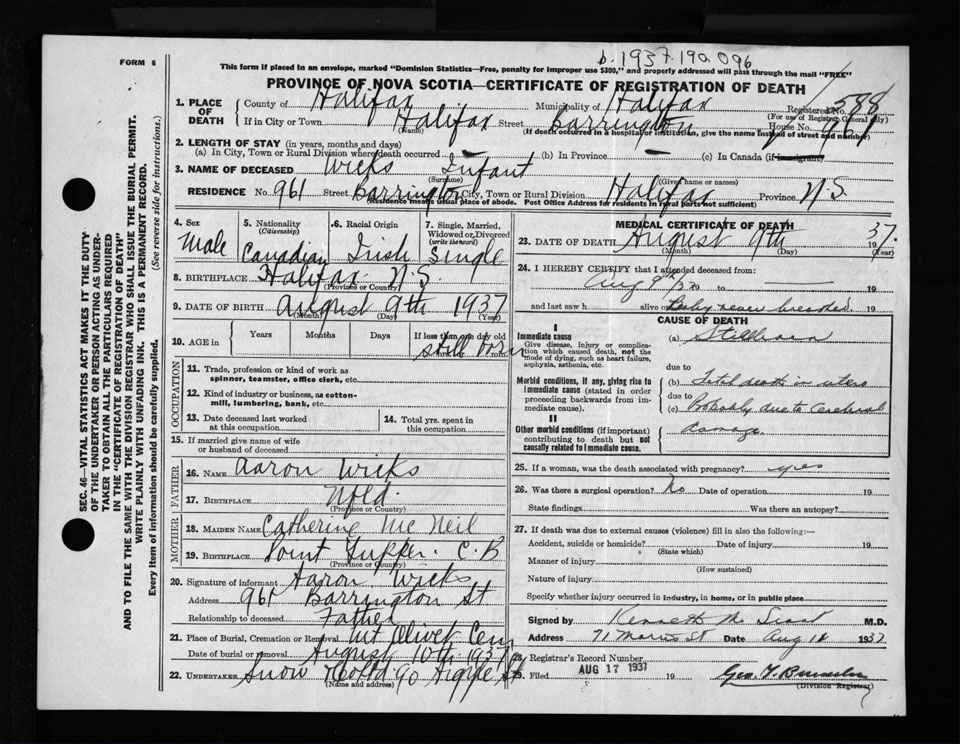 b. 1937.190.096
FORM 6
This form if placed in an envelope, marked "Dominion Statistics—Free, penalty for improper use $300," and properly addressed will pass through the mail "FREE"
PROVINCE OF NOVA SCOTIA—CERTIFICATE OF REGISTRATION OF DEATH
1. PLACE OF DEATH County of Halifax Municipality of Halifax Registered No. 1588
(For use of Registrar General only)
If in City or Town Halifax Street Barrington House No. 961
(Name) (If death occurred in a hospital or institution, give the name instead of street and number)
2. LENGTH OF STAY (in years, months and days)
(a) In City, Town or Rural Division where death occurred — (b) In Province — (c) In Canada (if immigrant)
3. NAME OF DECEASED Wicks Infant
(Surname) (Given name or names)
RESIDENCE No. 961 Street Barrington City, Town or Rural Division Halifax Province N.S.
(Residence means usual place of abode. Post Office Address for residents in rural parts not sufficient)
4. Sex Male
5. Nationality (Citizenship) Canadian
6. Racial Origin Irish
7. Single, Married, Widowed or Divorced (write the word) Single
8. BIRTHPLACE Halifax N.S.
(Province or Country)
9. DATE OF BIRTH August 9th 1937
(Month) (Day) (Year)
10. AGE in Years Months Days If less than one day old
still born
OCCUPATION
11. Trade, profession or kind of work as spinner, teamster, office clerk, etc.
12. Kind of industry or business, as cotton-mill, lumbering, bank, etc.
13. Date deceased last worked at this occupation
14. Total yrs. spent in this occupation
15. If married give name of wife or husband of deceased
FATHER
16. NAME Aaron Wicks
17. BIRTHPLACE Nfld.
(Province or Country)
MOTHER
18. MAIDEN NAME Catherine McNeil
19. BIRTHPLACE Point Tupper. C.B
(Province or Country)
20. Signature of informant Aaron Wicks
Address 961 Barrington St
Relationship to deceased Father
21. Place of Burial, Cremation or Removal Mt Olivet Cem
Date of burial or removal August 10th 1937
22. UNDERTAKER Snow & Co Ltd 90 Argyle St
(Name and address)
MEDICAL CERTIFICATE OF DEATH
23. DATE OF DEATH August 9th 1937.
(Month) (Day) (Year)
24. I HEREBY CERTIFY that I attended deceased from:
Aug 9th/37 19 to — 19
and last saw h alive on Baby never breathed 19
CAUSE OF DEATH
I
Immediate cause
Give disease, injury or complication which caused death, not the mode of dying, such as heart failure, asphyxia, asthenia, etc.
(a) Stillborn
due to
Morbid conditions, if any, giving rise to immediate cause (stated in order proceeding backwards from immediate cause).
(b) Fetal death in utero
due to
(c) Probably due to Cerebral
damage
II
Other morbid conditions (if important) contributing to death but not causally related to immediate cause.
25. If a woman, was the death associated with pregnancy? yes
26. Was there a surgical operation? No Date of operation 19
State findings Was there an autopsy?
27. If death was due to external causes (violence) fill in also the following:—
Accident, suicide or homicide? Date of injury 19
(State which)
Manner of injury
(How sustained)
Nature of injury
Specify whether injury occurred in industry, in home, or in public place
Signed by Kenneth M. M.D.
Address 71 Morris St Date Aug 1937
28. Registrar's Record Number
29. Filed AUG 17 1937 19
(Division Registrar)
SEC. 46—VITAL STATISTICS ACT MAKES IT THE DUTY
OF THE UNDERTAKER OR PERSON ACTING AS UNDER-
TAKER TO OBTAIN ALL THE PARTICULARS REQUIRED
IN THE "CERTIFICATE OF REGISTRATION OF DEATH"
AND TO FILE THE SAME WITH THE DIVISION REGISTRAR WHO SHALL ISSUE THE BURIAL PERMIT.
WRITE PLAINLY WITH UNFADING INK. THIS IS A PERMANENT RECORD.
Every item of information should be carefully supplied. (See reverse side for instructions.)